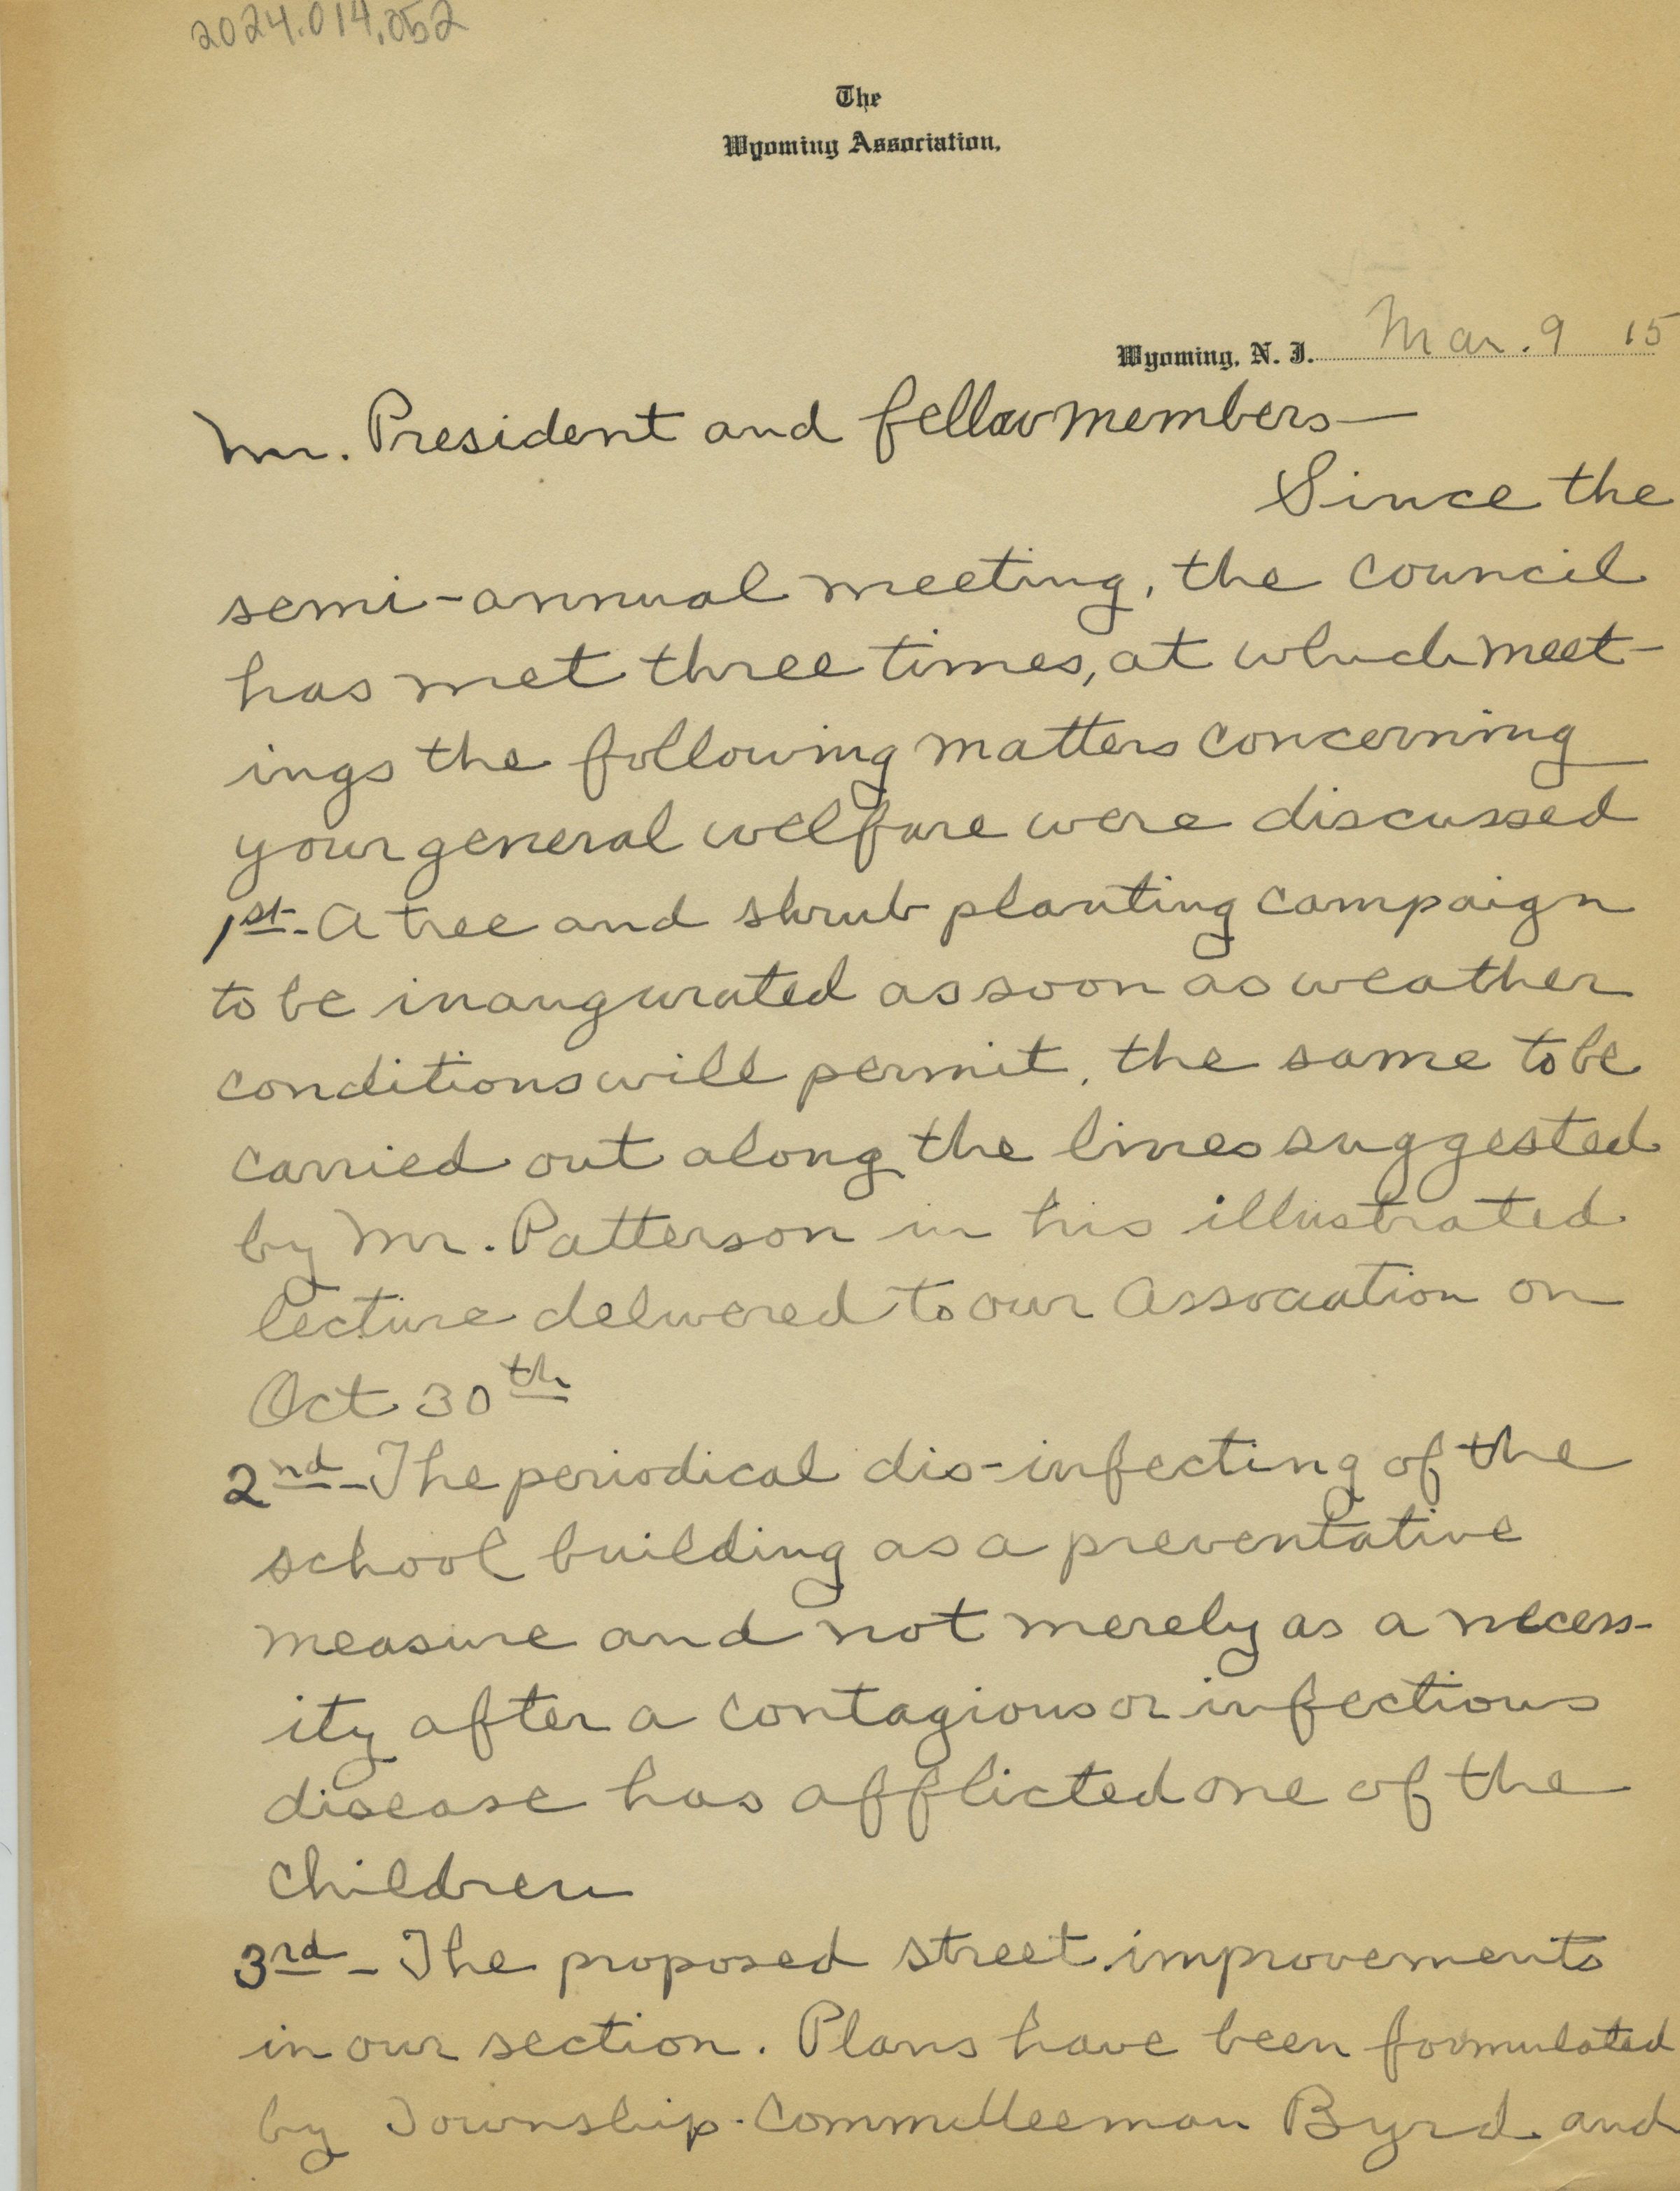 2024.014.052
The
Wyoming Association.
Wyoming, N. J. Mar. 9 15
Mr. President and fellow members—
Since the
semi-annual meeting, the council
has met three times, at which meet-
ings the following matters concerning
your general welfare were discussed
1st- A tree and shrub planting campaign
to be inaugurated as soon as weather
conditions will permit, the same to be
carried out along the lines suggested
by Mr. Patterson in his illustrated
lecture delivered to our Association on
Oct 30th
2nd- The periodical dis-infecting of the
school building as a preventative
measure and not merely as a necess-
ity after a contagious or infectious
disease has afflicted one of the
children
3rd- The proposed street improvements
in our section. Plans have been formulated
by Township-Committeeman Byrd and